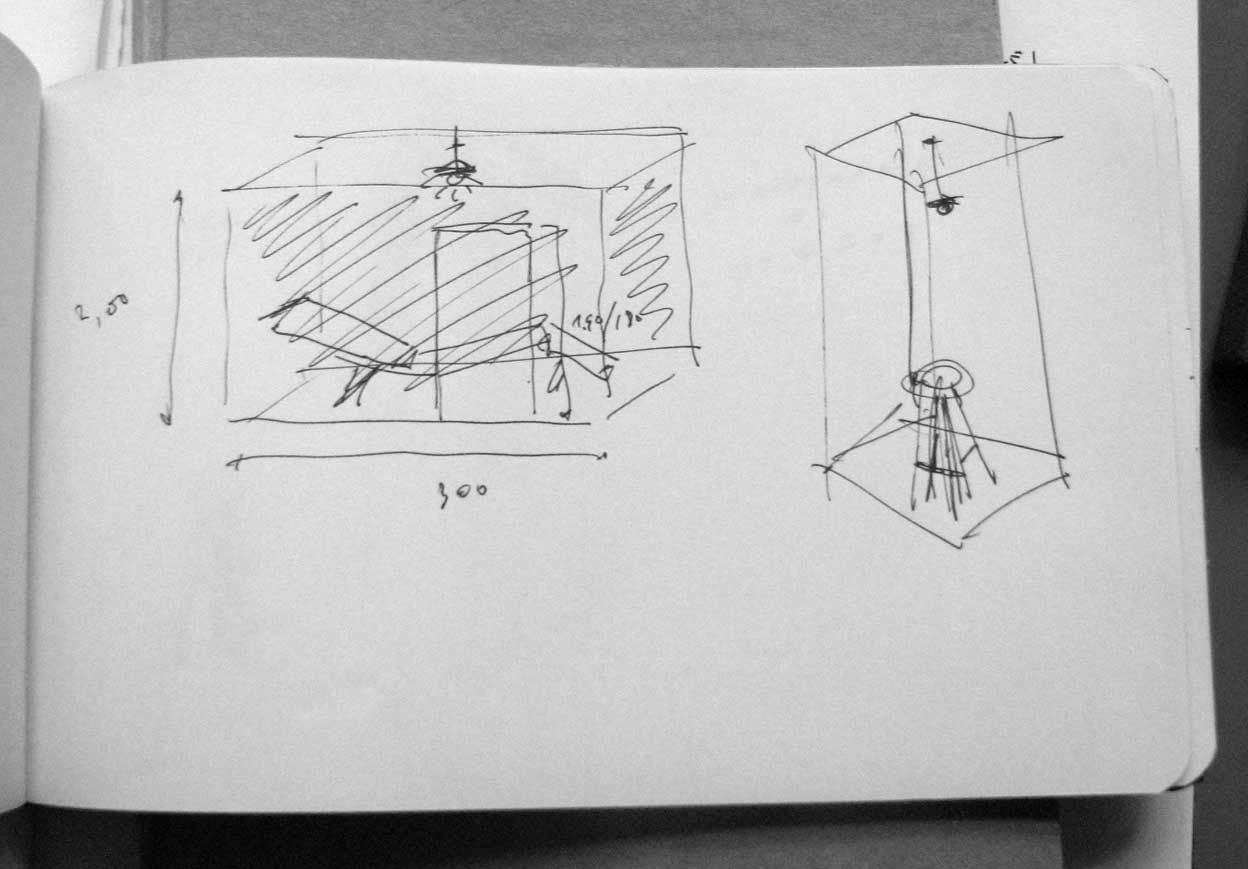 2,00
1.90/180
300